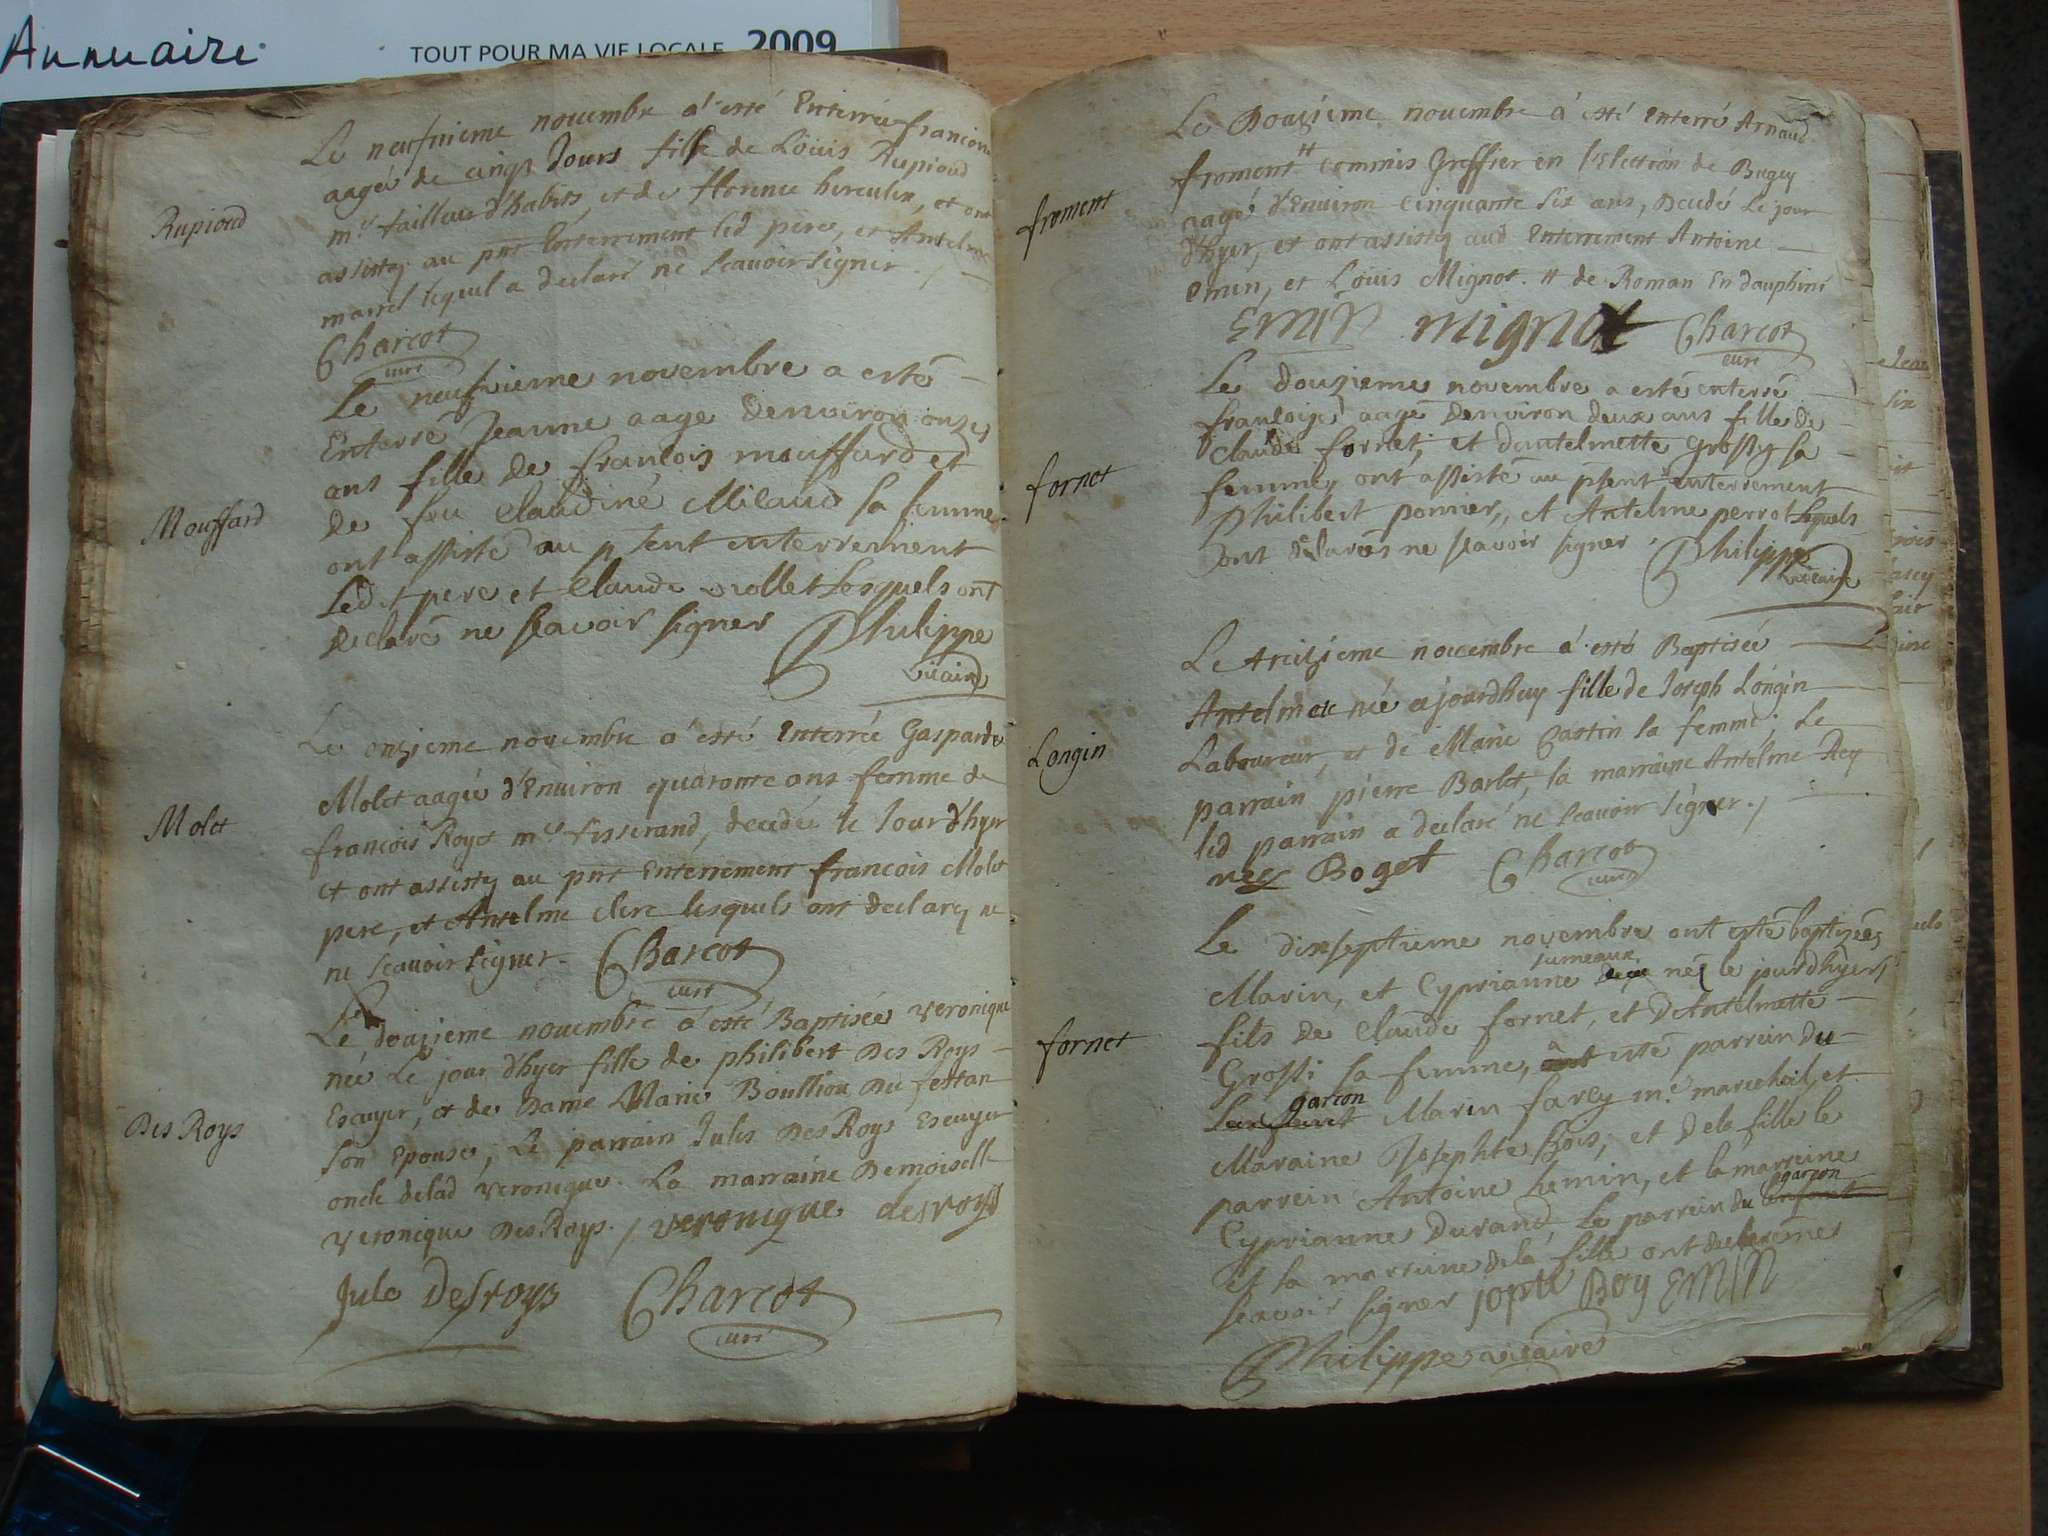 Annuaire
TOUT POUR MA VIE LOCALE 2009
Le neufuieme nouembre á esté Enterrée francoise
aagée de cinqs Jours fille de Löuis Rupioud
Rupioud
mre tailleur d'habits, et de florence herculex, et ont
assistez au pnt Enterrement led pere, et Antelme
marrel lequel a declaré ne scauoir signer./.
Charcot
curé
Le neufuieme novembre a esté
Enterré Jeanne aage denviron onzes
ans fille de francois mouffard et
Mouffard
de feu Claudine Milaud sa femme
ont assisté au psent enterrement
Ledt pere et Claude Lesquels ont
declarés ne sçavoir signer Philippe
vicaire
Le onzieme nouembre á esté Enterrée Gasparde
Molet aagée d'Enuiron quarante ans femme de
Molet
francois Royet mre tisserand, decedée le Jour d'hyer
et ont assistez au pnt Enterrement francois Molet
pere, et Antelme clerc lesquels ont declarez ne
ne scauoir signer. Charcot
curé
Le douzieme nouembre á esté Baptisée Veronique
née Le jour d'hyer fille de philibert Des Roys
Escuyer, et de Dame Marie Boullion Du festan
Des Roys
son Epouse, Le parrain Jules Des Roys Escuyer
oncle delad Veronique. La marraine Demoiselle
Veronique Des Roys./ veronique desroys
Jule Desroys Charcot
curé
Le Douzieme nouembre á esté Enterré Arnaud
froment # commis Greffier en l'Election de Bugey
froment
aagé d'Enuiron cinquante six ans, Decedé Le jour
d'hyer, et ont assistez aud Enterrement Antoine
Emin, et Löuis Mignot. # de Roman En dauphiné
EMIN mignot Charcot
curé
Le douzieme novembre a esté enterré
françoise aagé denviron deux ans fille de
Claude fornet, et dantelmette Grossy sa
fornet
femme, ont assisté au psent enterrement
Philibert ponnier, et Antelme perrot Lesquels
ont declarés ne sçavoir signer. Philippe
vicaire
Le treizieme nouembre á esté Baptisée
Antelmette née ajourdhuy fille de Joseph Longin
Longin
Laboureur, et de Marie Castin sa femme. Le
parrain pierre Barlet, la marraine Antelme Rey
led parrain a declaré ne scauoir signer./
rey Boget Charcot
curé
Le dixseptieme novembre ont esté baptizées
jumeaux
Marin, et Cyprianne nés le jourdhyer,
fils de Claude fornet, et D'Antelmette
fornet
Grossi sa femme, à esté parrein du
garcon
Lenfant Marin farcy me marechal, et
Maraine Josephte Bois, et de la fille le
parrein Antoine hemin, et la marreine
garcon
Cyprianne Durand, Le parrein du enfant
et la marreine dela fille ont declarés ne
sçavoir signer jopte Boy EMIN
Philippe vicaire